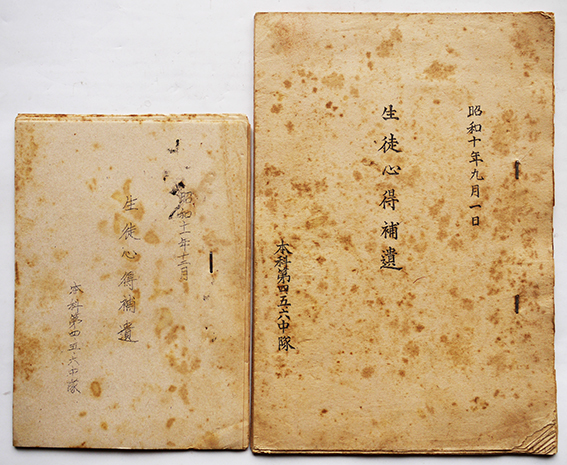 昭和十年九月一日
生徒心得補遺
本科第四五六中隊
昭和十一年十二月
生徒心得補遺
本科第四五、六中隊